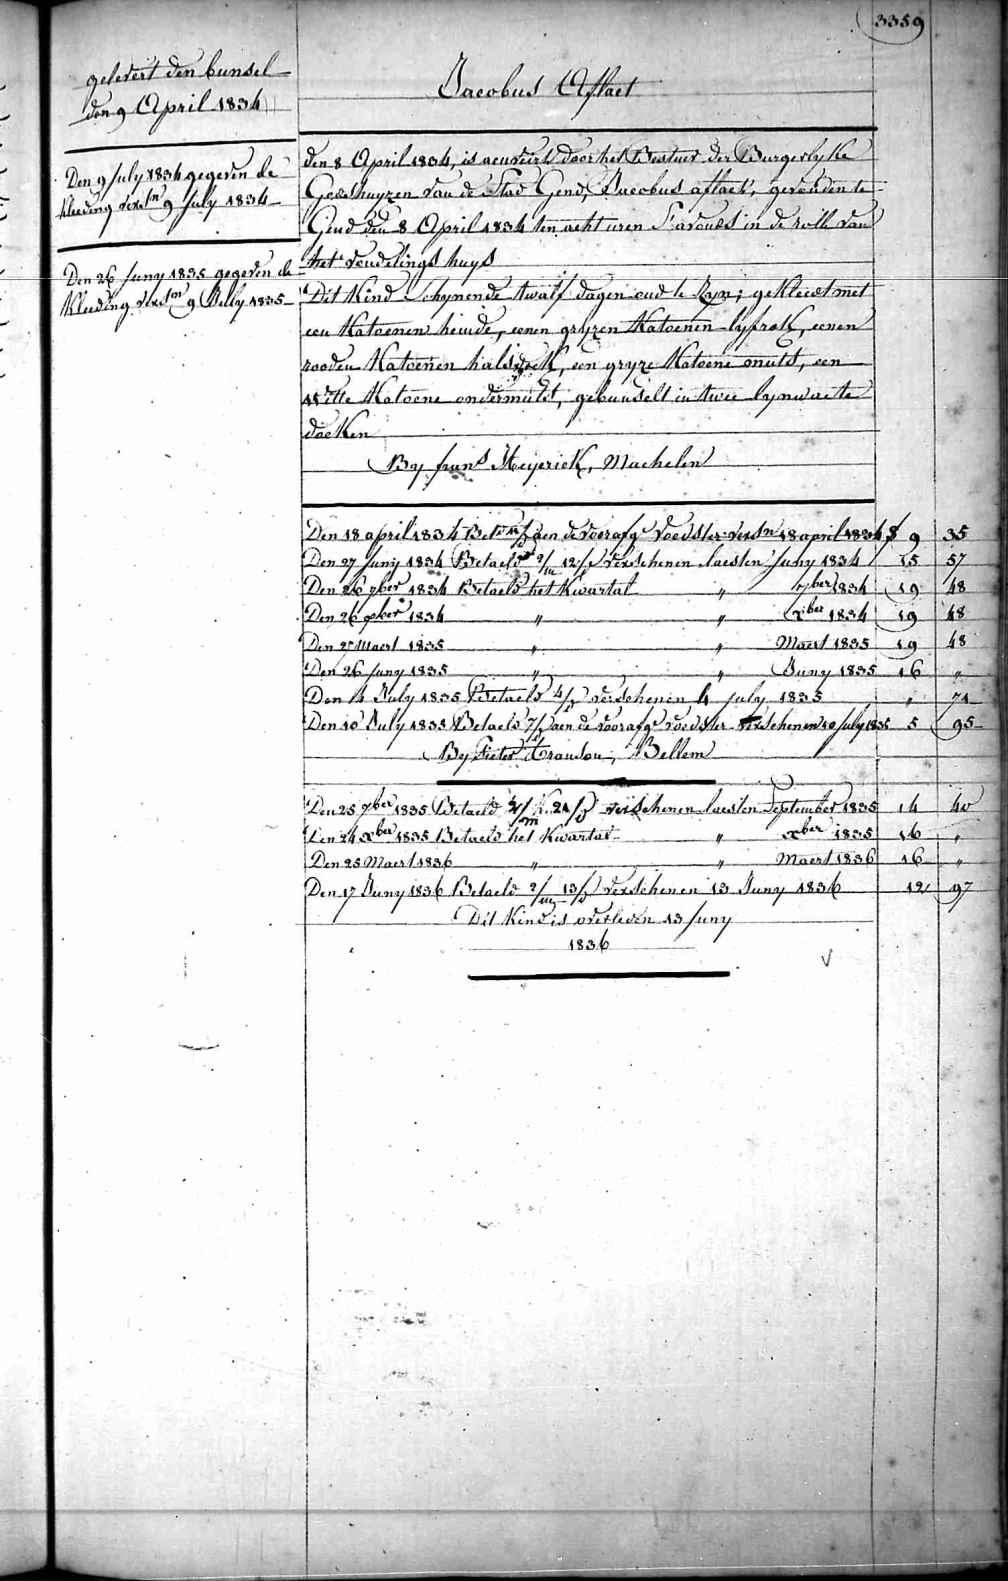 3359
gelevert den bunsel
den 9 April 1834
Jacobus Aflaet
Den 9 July 1834 gegeven de
kleeding versen 9 July 1834
Den 26 Juny 1835 gegeven de
kleeding versen 9 July 1835
den 8 April 1834, is aenveird door het Bestuer der Burgerlyke
Godshuyzen van de Stad Gend, Jacobus aflaet, gevonden te
Gend den 8 April 1834 ten acht uren S'avonds in de rolle van
het vondelings huys
Dit Kind Schynende twaelf dagen oud te Zyn; gekleed met
een Katoenen hemde, eenen gryzen Katoenen lyfrok, eenen
rooden Katoenen halsdoek, een gryze Katoene muts, een
witte Katoene ondermuts, gebunselt in twee lynwaete
doeken
By frans Meyerick, Machelen
Den 18 april 1834 aen de voorafge voedster versn 18 april 1834 f 9 35
Den 27 Juny 1834 Betaeld 2/m 12/d verschenen laesten Juny 1834 15 57
Den 26 7ber 1834 Betaeld het Kwartal " 7ber 1834 19 48
Den 26 xber 1834 " " xber 1834 19 48
Den 27 Maert 1835 " " Maert 1835 19 48
Den 26 Juny 1835 " " Juny 1835 16 "
Den 4 July 1835 Betaeld 4/d verschenen 4 july 1835 " 71
Den 10 July 1835 Betaeld 7/d aen de voorafge voedster verschenen 10 july 1835 5 95
By Pieter , Bellem
Den 25 7ber 1835 Betaeld 2/m 21/d verschenen laesten September 1835 14 40
Den 24 xber 1835 Betaeld het Kwartal " xber 1835 16 "
Den 25 Maert 1836 " " Maert 1836 16 "
Den 17 Juny 1836 Betaeld 2/m 13/d verschenen 13 Juny 1836 12 97
Dit Kind is overleden 13 Juny
1836